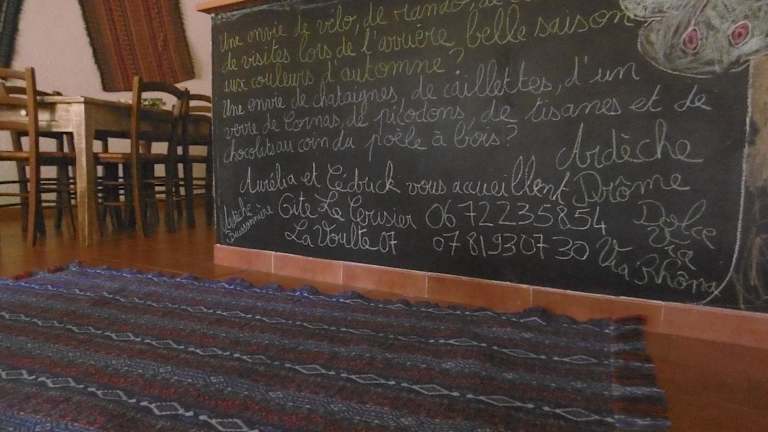 Une envie de vélo, de rando, de
de visites lors de l'arrière belle saison
aux couleurs d'automne?
Une envie de chataignes, de caillettes, d'un
verre de Cornas, de picodons, de tisanes et de
chocolats au coin du poêle à bois?
Aurélia et Cédrick vous accueillent
Gite Le Cerisier 06 72235854
La Voulte 07 07 81 93 07 30
Ardèche
Buissonnière
Ardèche
Drôme
Dolce
Via
Via Rhôna